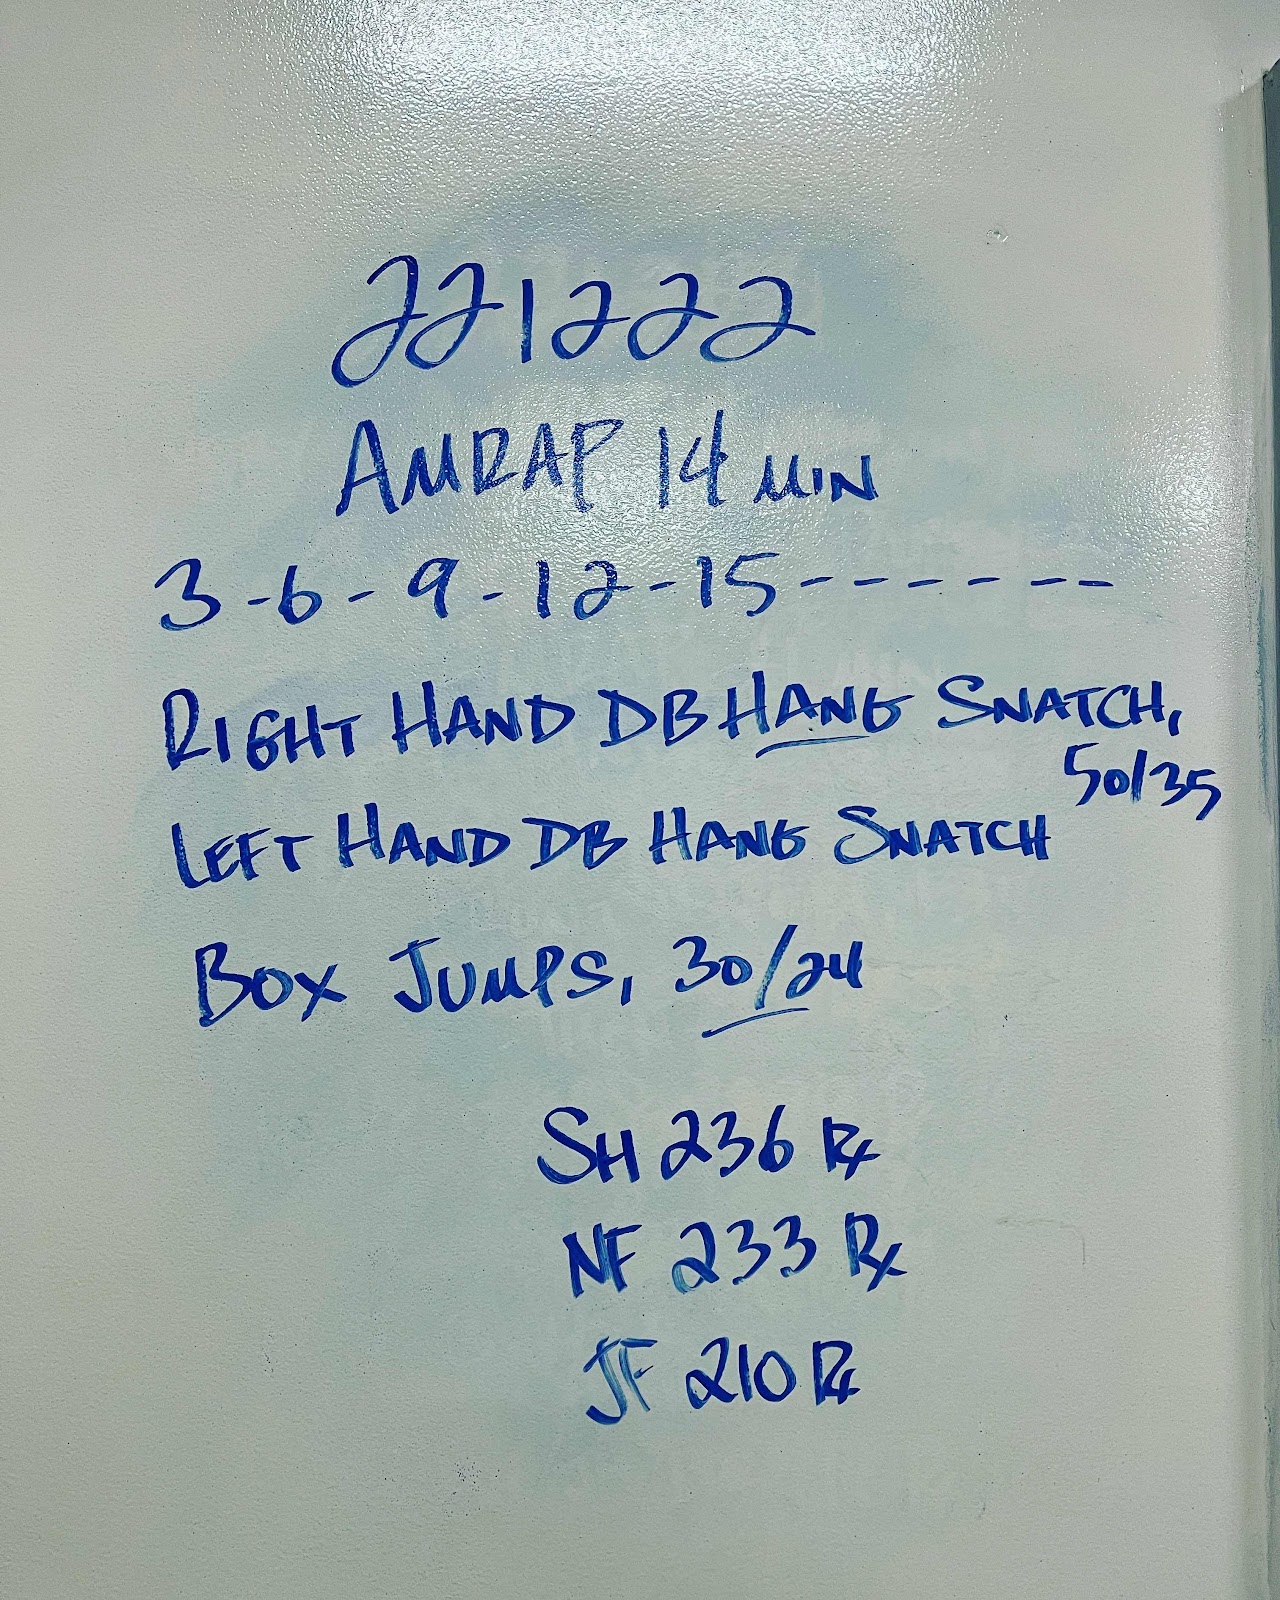 221222
AMRAP 14 MIN
3-6-9-12-15-------
RIGHT HAND DB HANG SNATCH,
50/35
LEFT HAND DB HANG SNATCH
BOX JUMPS, 30/24
SH 236 Rx
NF 233 Rx
JF 210 Rx